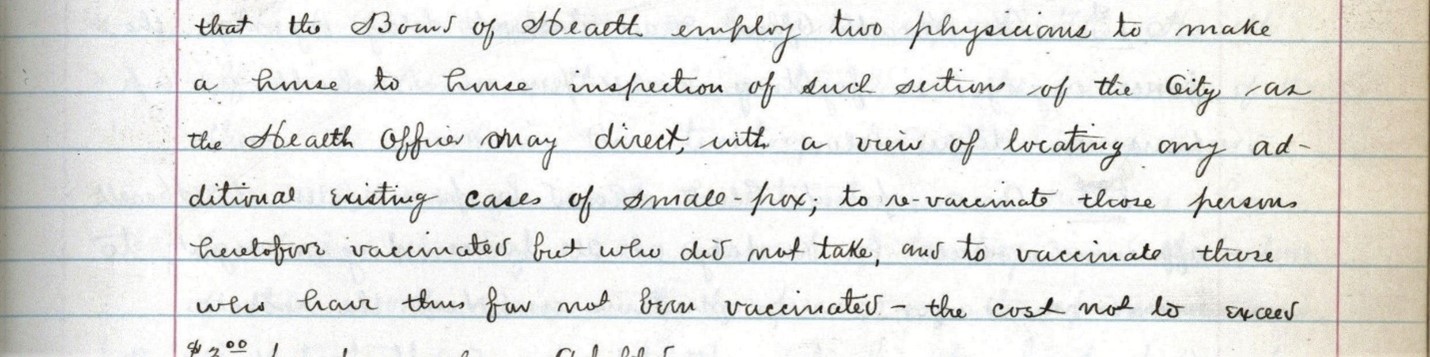 that the Board of Health employ two physicians to make
a house to house inspection of such sections of the City as
the Health Officer may direct, with a view of locating any ad-
ditional existing cases of small-pox; to re-vaccinate those persons
heretofore vaccinated but who did not take, and to vaccinate those
who have thus far not been vaccinated - the cost not to exceed